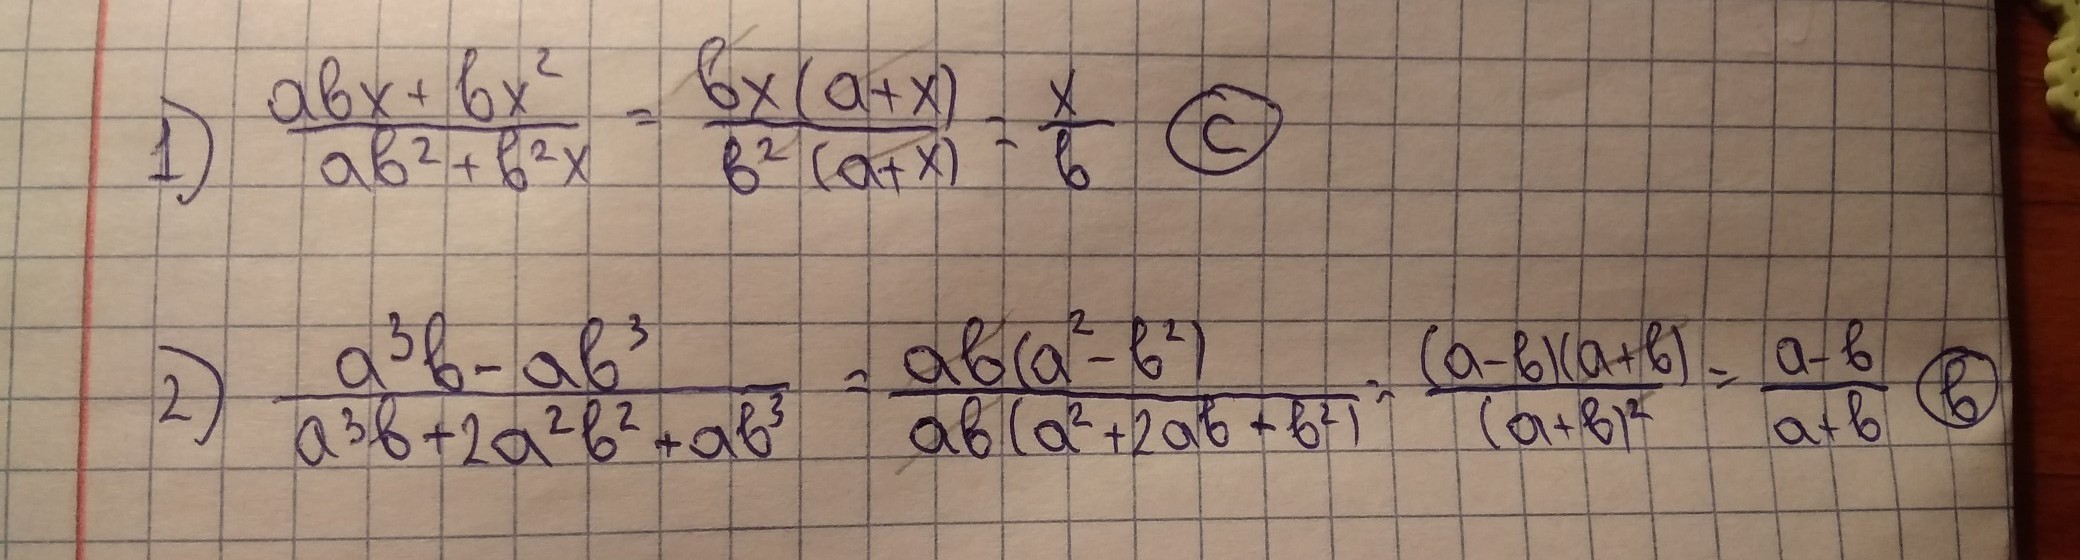 1) (abx + bx²)/(ab² + b²x) = (bx(a+x))/(b²(a+x)) = x/b (c)
2) (a³b - ab³)/(a³b + 2a²b² + ab³) = (ab(a² - b²))/(ab(a² + 2ab + b²)) = ((a-b)(a+b))/((a+b)²) = (a-b)/(a+b) (b)